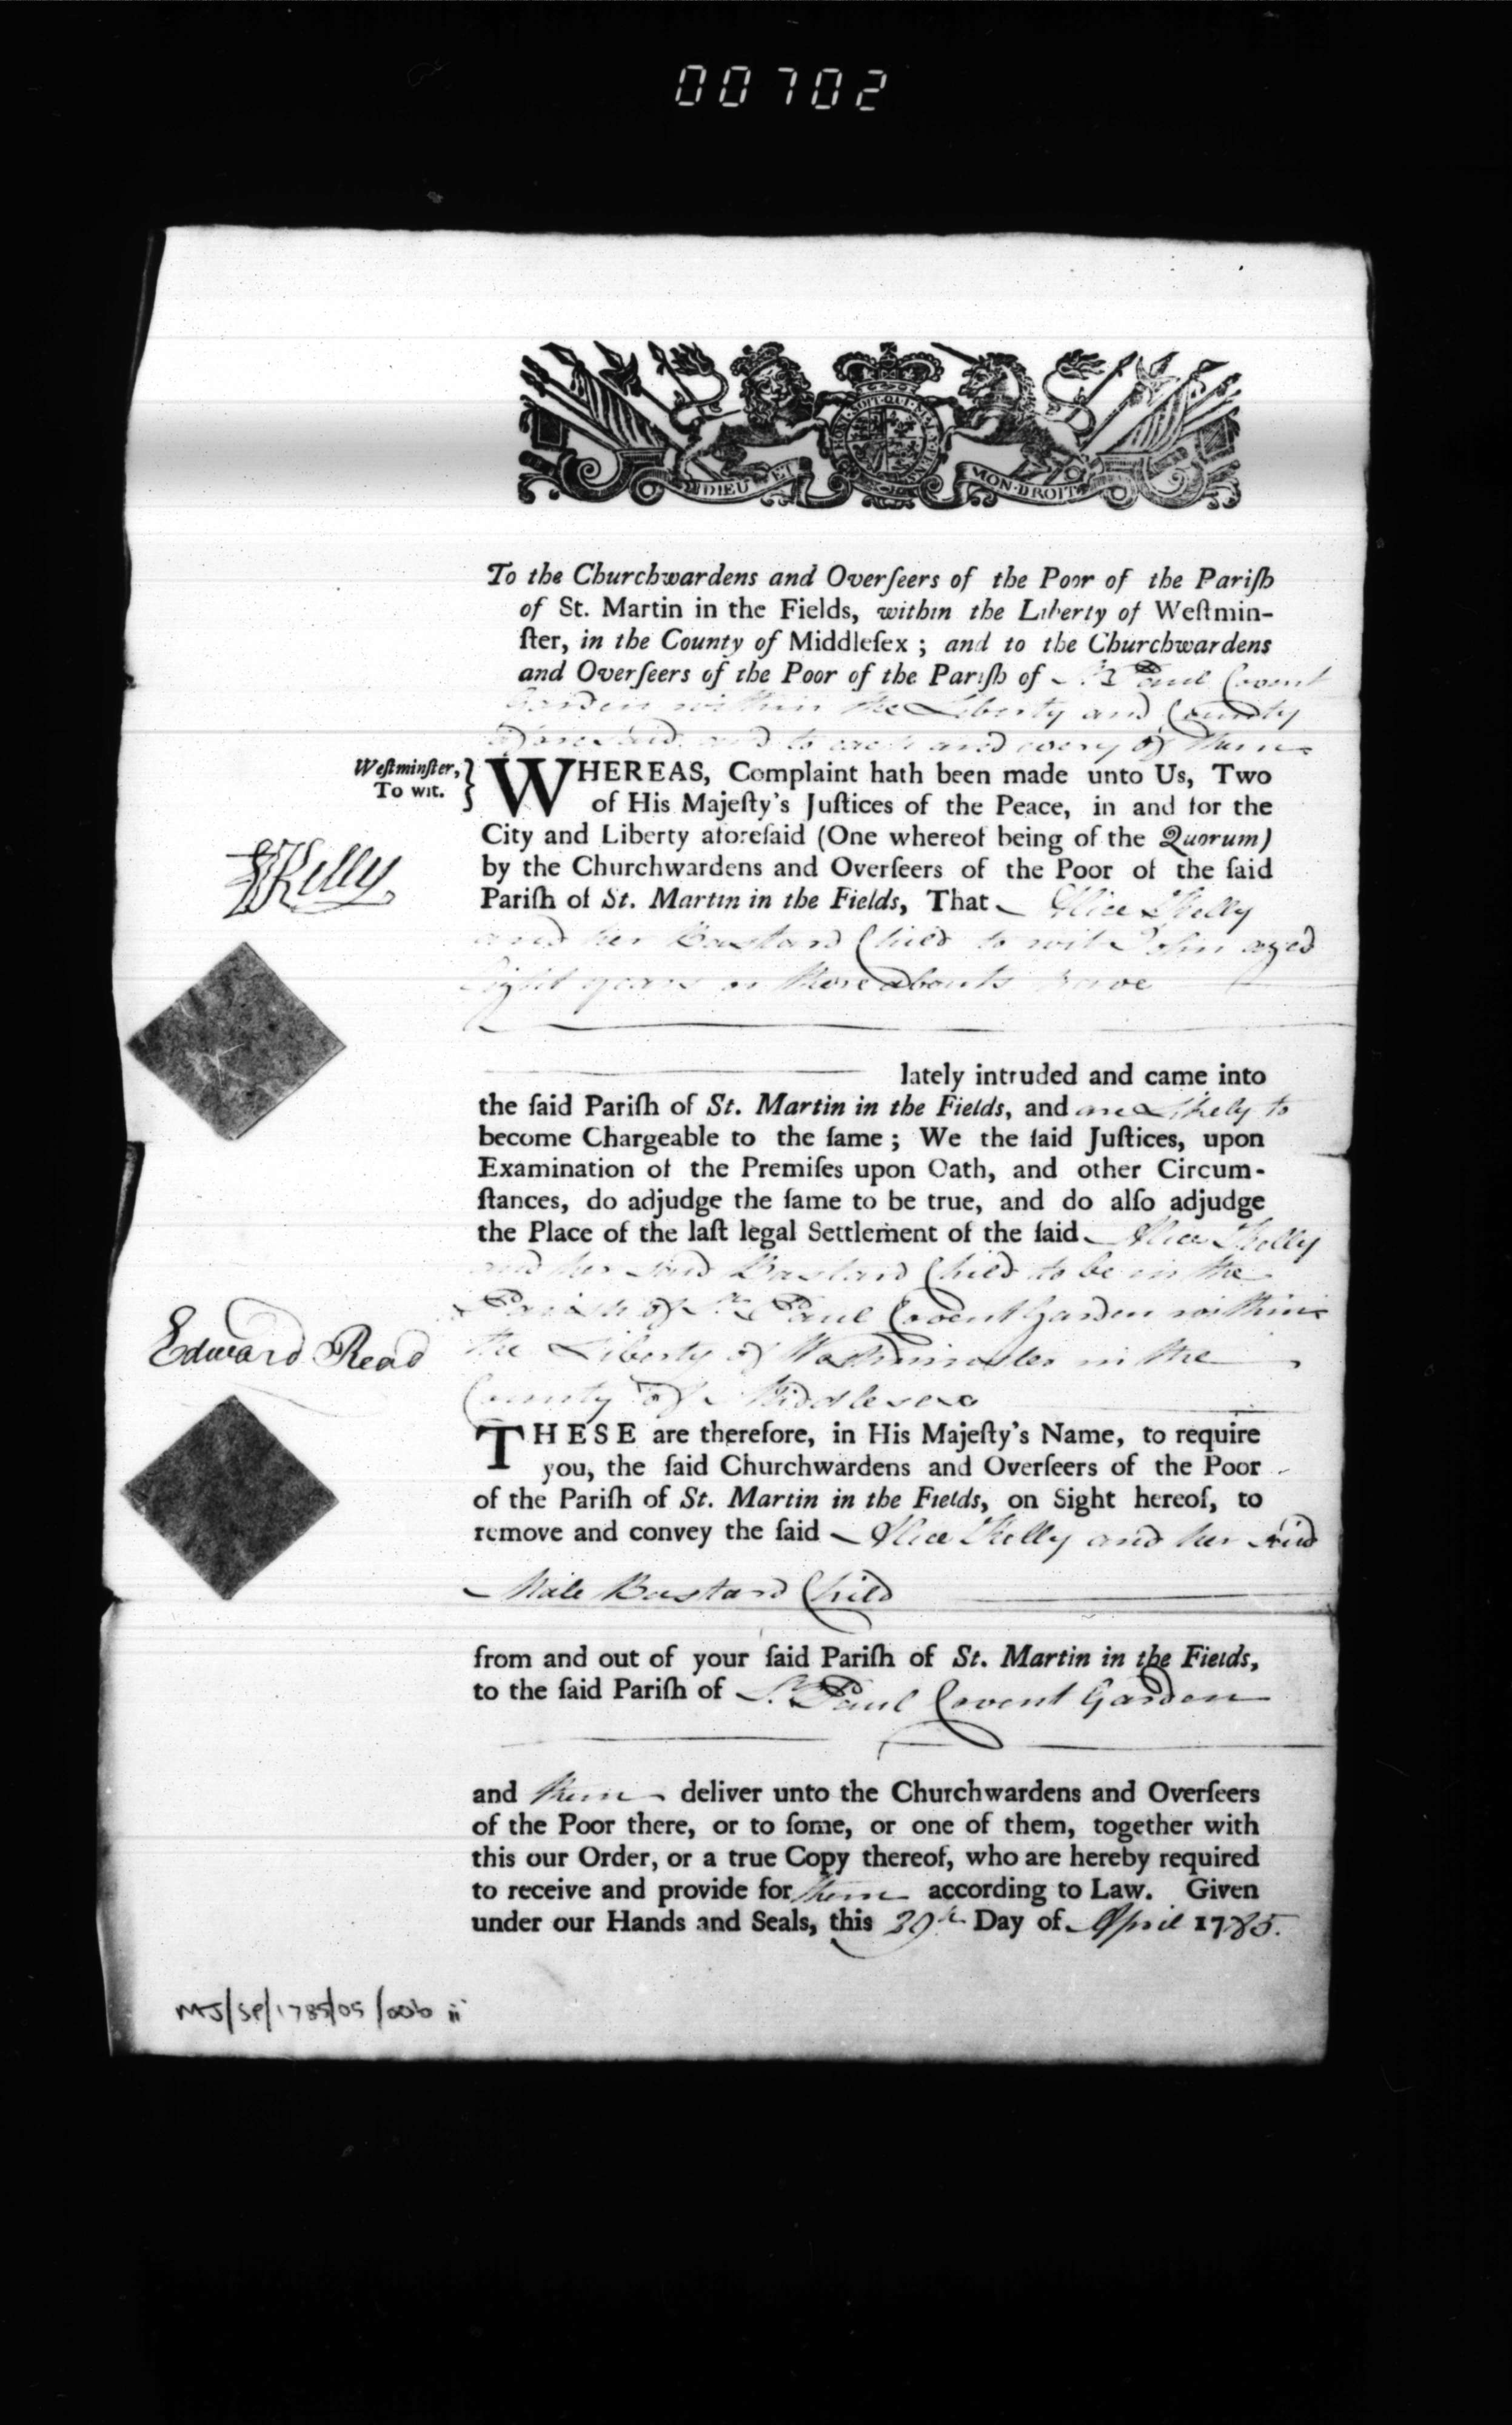 00702
HONI·SOIT·QUI·MAL·Y·PENSE
DIEU ET MON·DROIT
To the Churchwardens and Overſeers of the Poor of the Pariſh
of St. Martin in the Fields, within the Liberty of Weſtmin-
ſter, in the County of Middleſex; and to the Churchwardens
and Overſeers of the Poor of the Pariſh of St Paul Covent
Garden within the Liberty and County
aforesaid and to each and every of them
Weſtminſter,
To wit.
WHEREAS, Complaint hath been made unto Us, Two
of His Majeſty's Juſtices of the Peace, in and for the
City and Liberty aforeſaid (One whereof being of the Quorum)
by the Churchwardens and Overſeers of the Poor of the ſaid
Pariſh of St. Martin in the Fields, That Alice Skelly
and her Bastard Child to wit John aged
Eight years or thereabouts have
Kelly
lately intruded and came into
the ſaid Pariſh of St. Martin in the Fields, and are likely to
become Chargeable to the ſame; We the ſaid Juſtices, upon
Examination of the Premiſes upon Oath, and other Circum-
ſtances, do adjudge the ſame to be true, and do alſo adjudge
the Place of the laſt legal Settlement of the ſaid Alice Skelly
and her said Bastard Child to be in the
Parish of St. Paul Covent Garden within
the Liberty of Westminster in the
County of Middlesex
Edward Read
THESE are therefore, in His Majeſty's Name, to require
you, the ſaid Churchwardens and Overſeers of the Poor
of the Pariſh of St. Martin in the Fields, on Sight hereof, to
remove and convey the ſaid Alice Skelly and her said
Male Bastard Child
from and out of your ſaid Pariſh of St. Martin in the Fields,
to the ſaid Pariſh of St. Paul Covent Garden
and them deliver unto the Churchwardens and Overſeers
of the Poor there, or to ſome, or one of them, together with
this our Order, or a true Copy thereof, who are hereby required
to receive and provide for them according to Law. Given
under our Hands and Seals, this Day of April 1785.
MJ/SP/1785/05/006 ii